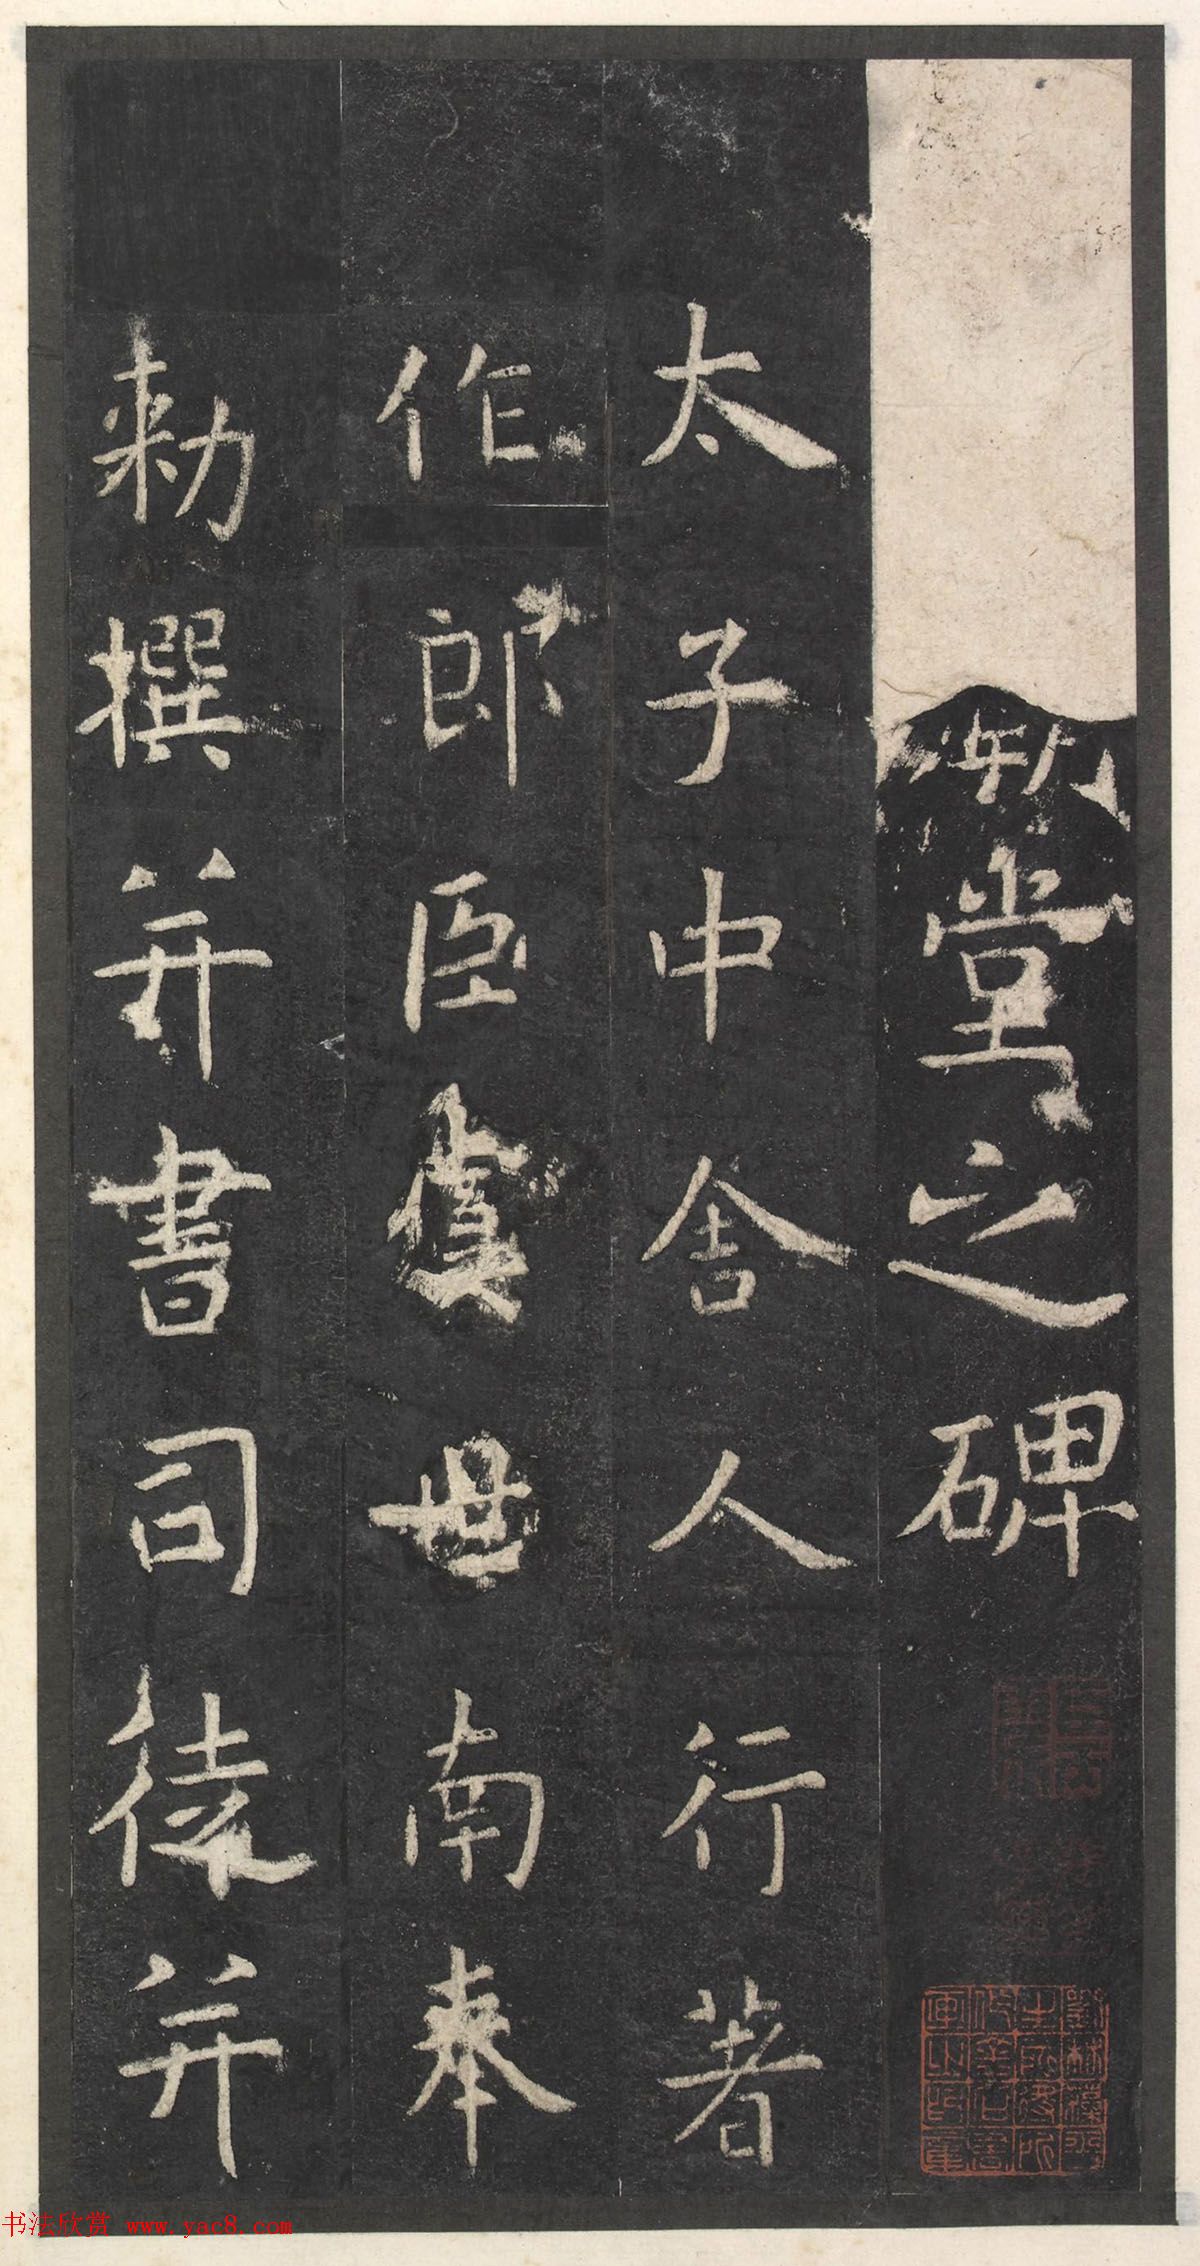 堂之碑
太子中舍人行著
作郎臣虞世南奉
勅撰并書司徒并
书法欣赏 www.yac8.com